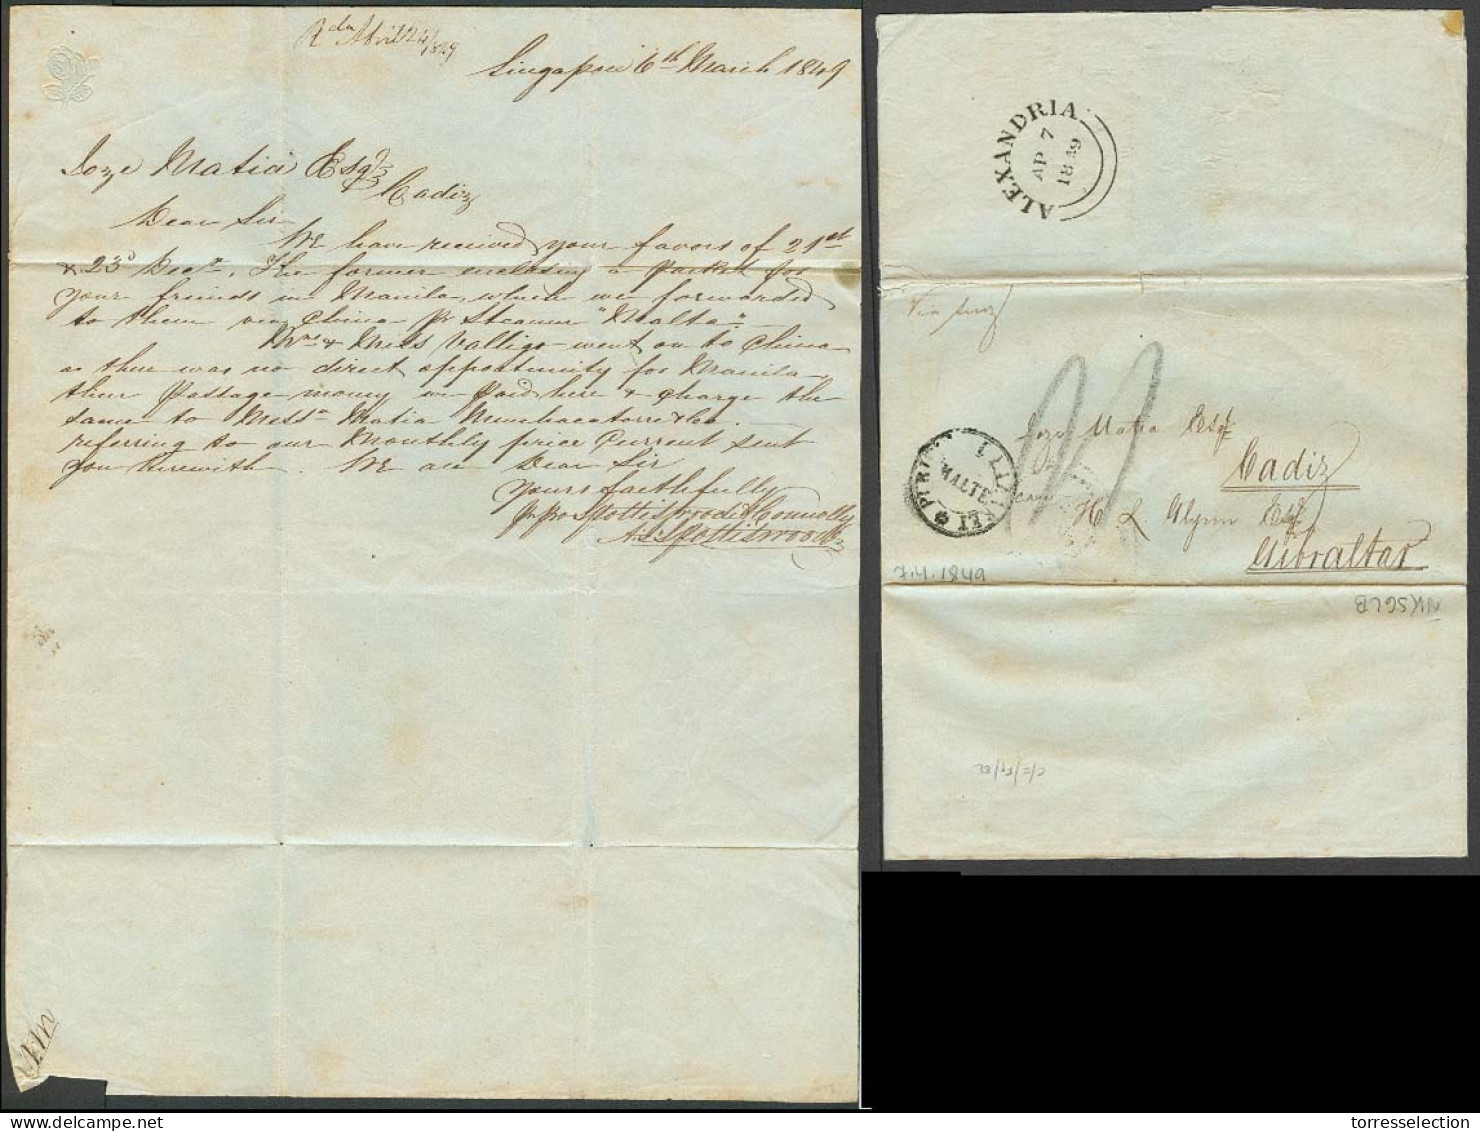 Rda Abril 24/1849
Singapore 6th March 1849
Joze Matia Esqre
Cadiz
Dear Sir
We have received your favors of 21st
& 23d Decr. The former enclosing a packet for
your friends in Manila, which we forwarded
to them via China pr Steamer "Malta".
Mr & Miss Valligo went on to China
as there was no direct opportunity for Manila
their passage money we paid here & charge the
same to Messrs Matia Menchacatorre & Co.
referring to our Monthly price Current sent
you herewith. We are Dear Sir
Yours faithfully
pr pro Spottiswoode & Connolly
A. Spottiswoode
ALEXANDRIA
AP 7
1849
Via Suez
Joze Matia Esqr
Cadiz
care
H L Glynn Esqr
Gibraltar
MALTE
7.4.1849
torresselection